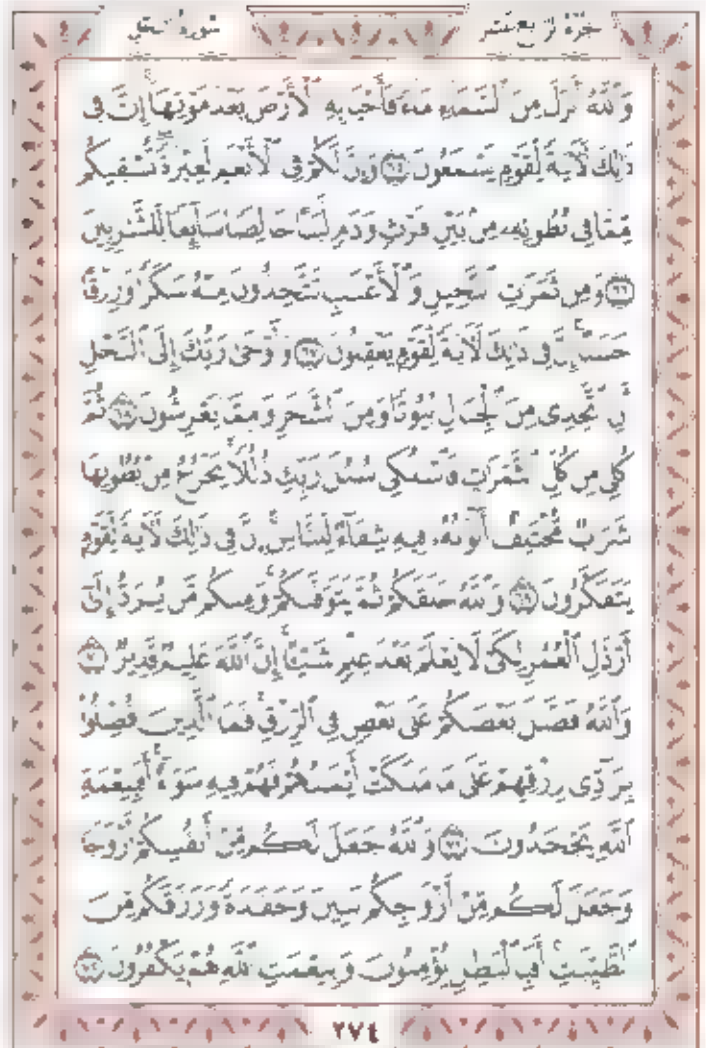 الجزء الرابع عشر سورة النحل
وَٱللَّهُ أَنزَلَ مِنَ ٱلسَّمَآءِ مَآءً فَأَحْيَا بِهِ ٱلْأَرْضَ بَعْدَ مَوْتِهَآ إِنَّ فِى
ذَٰلِكَ لَءَايَةً لِّقَوْمٍ يَسْمَعُونَ ٦٥ وَإِنَّ لَكُمْ فِى ٱلْأَنْعَٰمِ لَعِبْرَةً نُّسْقِيكُم
مِّمَّا فِى بُطُونِهِۦ مِنۢ بَيْنِ فَرْثٍ وَدَمٍ لَّبَنًا خَالِصًا سَآئِغًا لِّلشَّٰرِبِينَ
٦٦ وَمِن ثَمَرَٰتِ ٱلنَّخِيلِ وَٱلْأَعْنَٰبِ تَتَّخِذُونَ مِنْهُ سَكَرًا وَرِزْقًا
حَسَنًا إِنَّ فِى ذَٰلِكَ لَءَايَةً لِّقَوْمٍ يَعْقِلُونَ ٦٧ وَأَوْحَىٰ رَبُّكَ إِلَى ٱلنَّحْلِ
أَنِ ٱتَّخِذِى مِنَ ٱلْجِبَالِ بُيُوتًا وَمِنَ ٱلشَّجَرِ وَمِمَّا يَعْرِشُونَ ٦٨ ثُمَّ
كُلِى مِن كُلِّ ٱلثَّمَرَٰتِ فَٱسْلُكِى سُبُلَ رَبِّكِ ذُلُلًا يَخْرُجُ مِنۢ بُطُونِهَا
شَرَابٌ مُّخْتَلِفٌ أَلْوَٰنُهُۥ فِيهِ شِفَآءٌ لِّلنَّاسِ إِنَّ فِى ذَٰلِكَ لَءَايَةً لِّقَوْمٍ
يَتَفَكَّرُونَ ٦٩ وَٱللَّهُ خَلَقَكُمْ ثُمَّ يَتَوَفَّىٰكُمْ وَمِنكُم مَّن يُرَدُّ إِلَىٰٓ
أَرْذَلِ ٱلْعُمُرِ لِكَىْ لَا يَعْلَمَ بَعْدَ عِلْمٍ شَيْـًٔا إِنَّ ٱللَّهَ عَلِيمٌ قَدِيرٌ ٧٠
وَٱللَّهُ فَضَّلَ بَعْضَكُمْ عَلَىٰ بَعْضٍ فِى ٱلرِّزْقِ فَمَا ٱلَّذِينَ فُضِّلُوا۟
بِرَآدِّى رِزْقِهِمْ عَلَىٰ مَا مَلَكَتْ أَيْمَٰنُهُمْ فَهُمْ فِيهِ سَوَآءٌ أَفَبِنِعْمَةِ
ٱللَّهِ يَجْحَدُونَ ٧١ وَٱللَّهُ جَعَلَ لَكُم مِّنْ أَنفُسِكُمْ أَزْوَٰجًا
وَجَعَلَ لَكُم مِّنْ أَزْوَٰجِكُم بَنِينَ وَحَفَدَةً وَرَزَقَكُم مِّنَ
ٱلطَّيِّبَٰتِ أَفَبِٱلْبَٰطِلِ يُؤْمِنُونَ وَبِنِعْمَتِ ٱللَّهِ هُمْ يَكْفُرُونَ ٧٢
٢٧٤